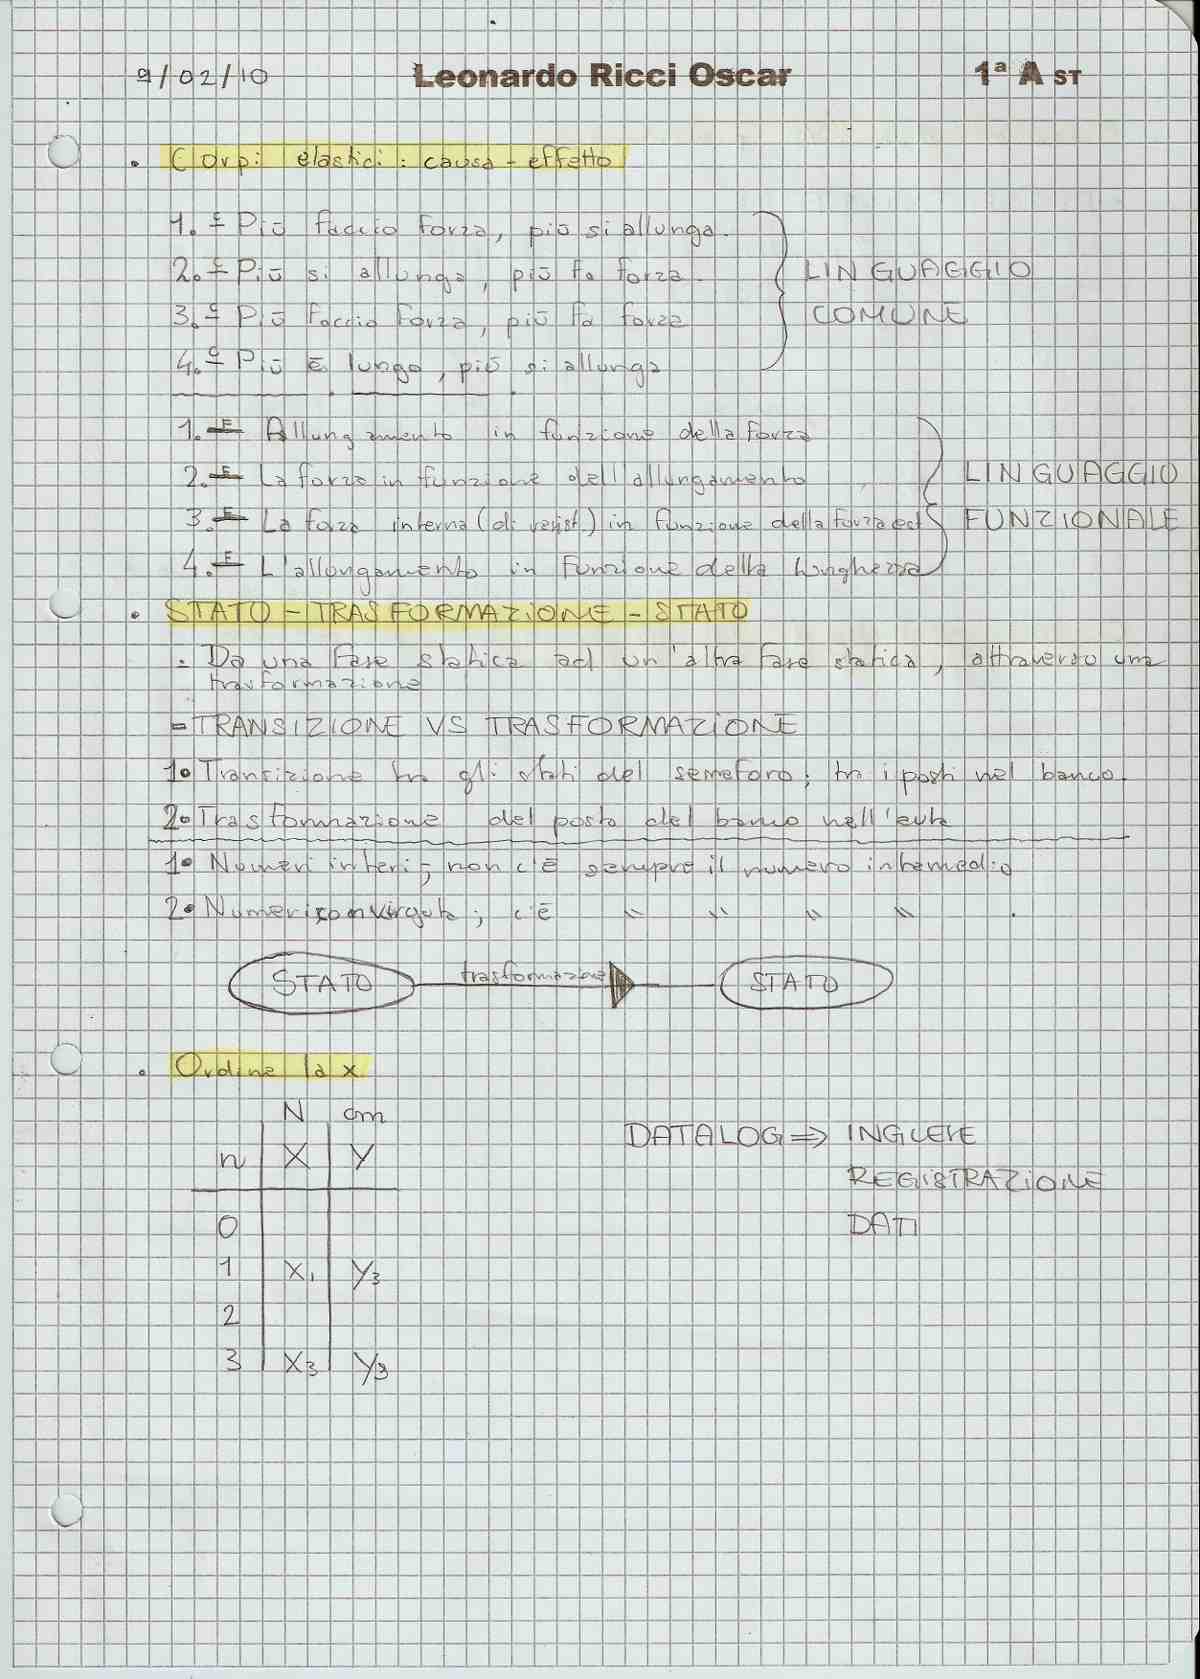 9/02/10 Leonardo Ricci Oscar 1ª A ST
• Corpi elastici: causa - effetto
1.º Più faccio forza, più si allunga.
2.º Più si allunga, più fa forza.
3.º Più faccio forza, più fa forza
4.º Più è lungo, più si allunga
LINGUAGGIO
COMUNE
1. Allungamento in funzione della forza
2. La forza in funzione dell'allungamento
3. La forza interna (di resist.) in funzione della forza est
4. L'allungamento in funzione della lunghezza
LINGUAGGIO
FUNZIONALE
• STATO - TRASFORMAZIONE - STATO
- Da una fase statica ad un'altra fase statica, attraverso una
trasformazione
- TRANSIZIONE VS TRASFORMAZIONE
1• Transizione tra gli stati del semaforo; tra i posti nel banco.
2• Trasformazione del posto del banco nell'aula
1• Numeri interi; non c'è sempre il numero intermedio
2• Numeri con virgola; c'è " " " " .
STATO trasformazione STATO
• Ordine la x
N cm
n X Y
0
1 X1 Y3
2
3 X3 Y3
DATALOG => INGLESE
REGISTRAZIONE
DATI